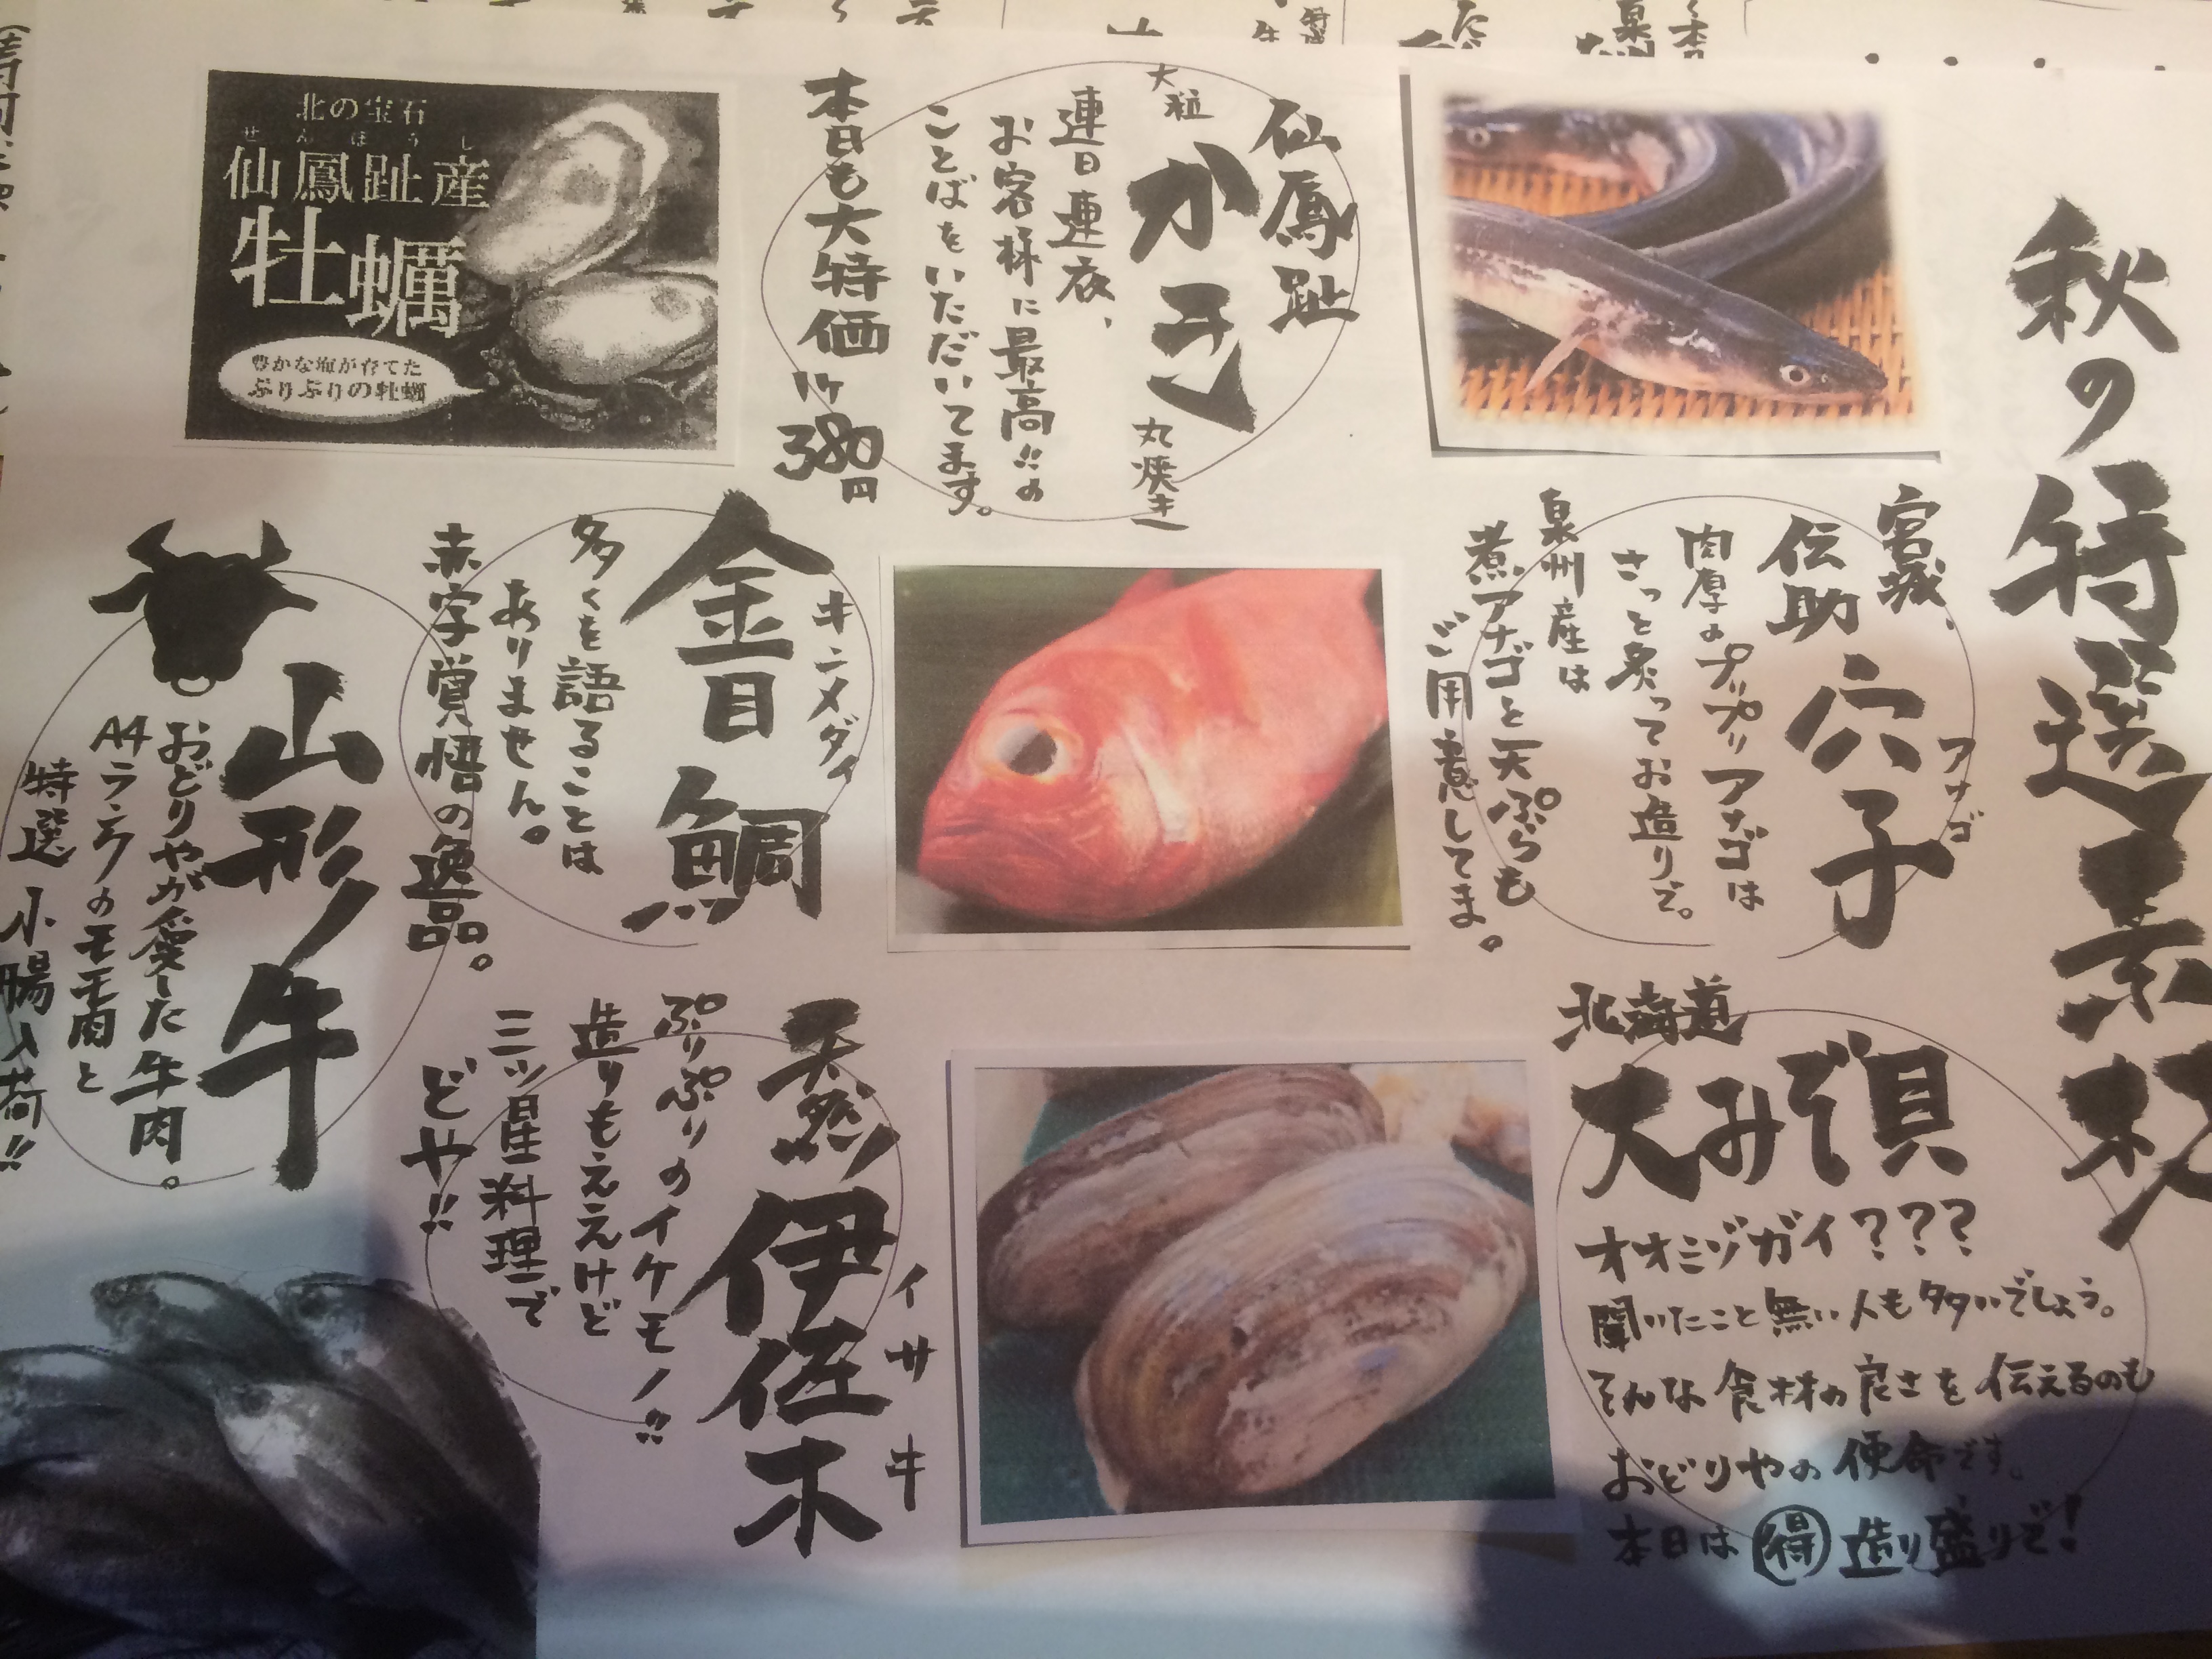 秋の特選素材
宮城、
伝助
穴子
アナゴ
肉厚のプリプリアナゴは
さっと炙ってお造りで。
泉州産は
煮アナゴと天ぷらも
ご用意してま。
北海道
大みぞ貝
オオミゾガイ???
聞いたこと無い人も多いでしょう。
そんな食材の良さを伝えるのも
おどりやの使命です。
本日は得造り盛りで!
仙鳳趾
大粒
かき
丸焼き
連日連夜、
お客様に最高!!の
ことばをいただいてます。
本日も大特価
1ケ380円
北の宝石
せんぽうし
仙鳳趾産
牡蠣
豊かな海が育てた
ぷりぷりの牡蠣
キンメダイ
金目鯛
多くを語ることは
ありません。
赤字覚悟の逸品。
天然
伊佐木
イサキ
ぷりぷりのイケモノ!!
造りもええけど
三ツ星料理で
どや!!
山形牛
おどりやが愛した牛肉。
A4ランクのモモ肉と
特選小腸入荷!!